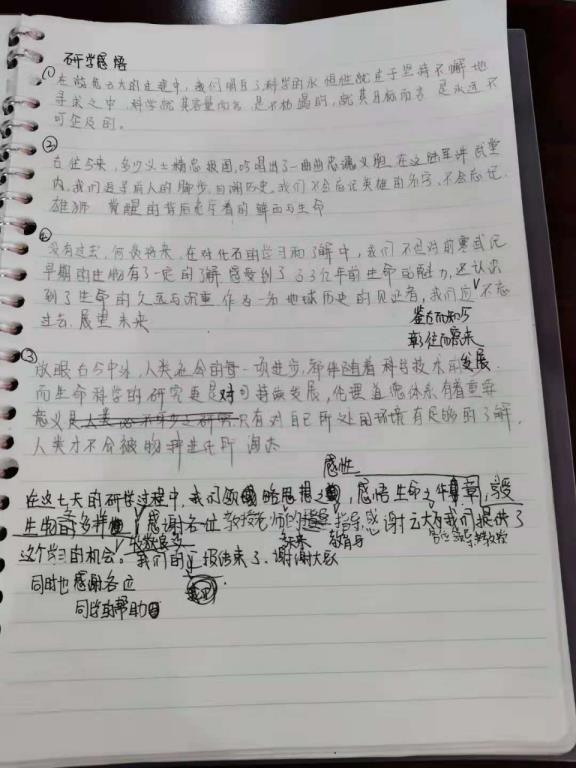 研学感悟
① 在的过程中，我们明白了科学的永恒性就在于坚持不懈地
寻求之中，科学就其容量而言，是不枯竭的，就其目标而言，是永远不
可企及的。
②
古往今来，多少义士精忠报国，吟唱出了一曲曲忠魂义胆，在这陆军讲武堂
内，我们追寻前人的脚步，回溯历史，我们不会忘记英雄的名字，不会忘记
雄狮 觉醒的背后是牺牲的鲜血与生命
没有过去，何谈将来，在对化石的学习和了解中，我们不但对前寒武纪
早期的生物有了一定的了解，感受到了5.3亿年前生命的魅力，还认识
到了生命的久远与沉重，作为一名地球历史的见证者，我们应不忘
过去，展望未来
鉴古而知今
彰往而察来
③
放眼古今中外，人类社会的每一项进步，都伴随着科学技术的发展
而生命科学的研究更是对可持续发展，伦理道德体系有着重要
意义 只有对自己所处的环境有足够的了解，
人类才不会被物种进化所淘汰
感性
在这七天的研学过程中，我们领略思想之，感悟生命之
生物的多样 感谢各位教授老师的指导，感谢云大为我们提供了
这个学习的机会。我们的汇报结束了，谢谢大家
未来
同时也感谢各位
同学的帮助